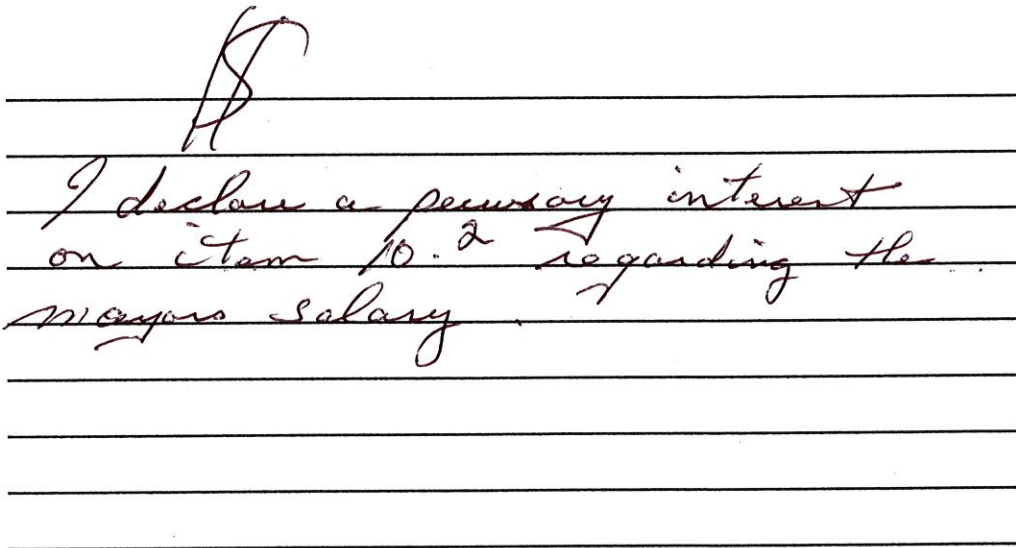 I declare a pecuniary interest
on item 10.2 regarding the
mayors salary.